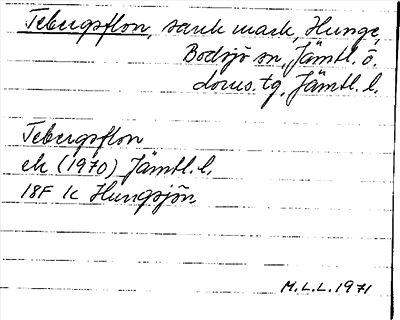 Tebergsflon, sank mark, Hunge,
Bodsjö sn, Jämtl. ö.
doms. tg, Jämtl. l.
Tebergsflon
ek (1970) Jämtl. l.
18F 1c Hungsjön
M.L.L. 1971